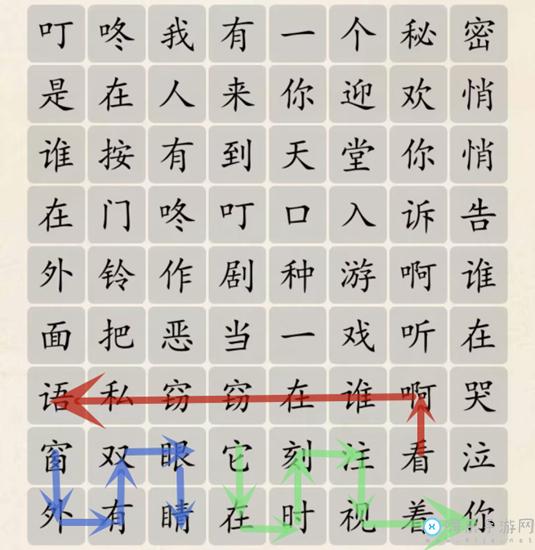 叮咚我有一个秘密
是在人来你迎欢悄
谁按有到天堂你悄
在门咚叮口入诉告
外铃作剧种游啊谁
面把恶当一戏听在
语私窃窃在谁啊哭
窗双眼它刻注看泣
外有睛在时视着你